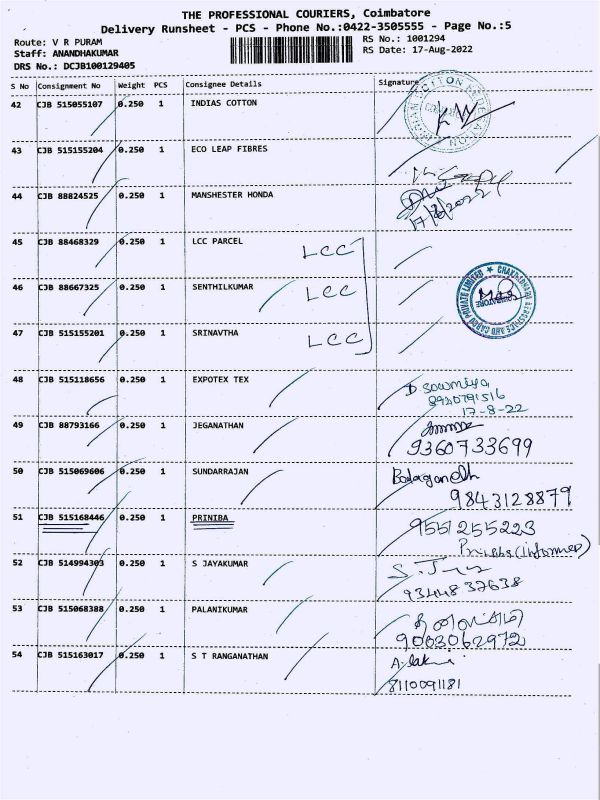 THE PROFESSIONAL COURIERS, Coimbatore
Delivery Runsheet - PCS - Phone No.:0422-3505555 - Page No.:5
Route: V R PURAM RS No.: 1001294
Staff: ANANDHAKUMAR RS Date: 17-Aug-2022
DRS No.: DCJB100129405
S No Consignment No Weight PCS Consignee Details Signature
42 CJB 515055107 0.250 1 INDIAS COTTON
43 CJB 515155204 0.250 1 ECO LEAP FIBRES
44 CJB 88824525 0.250 1 MANSHESTER HONDA
17/8/2022
45 CJB 88468329 0.250 1 LCC PARCEL LCC
46 CJB 88667325 0.250 1 SENTHILKUMAR LCC
47 CJB 515155201 0.250 1 SRINAVTHA LCC
48 CJB 515118656 0.250 1 EXPOTEX TEX D Sowmiya
17-8-22
49 CJB 88793166 0.250 1 JEGANATHAN
9360733699
50 CJB 515069606 0.250 1 SUNDARRAJAN
9843128879
51 CJB 515168446 0.250 1 PRINIBA 9551255223
(Informed)
52 CJB 514994303 0.250 1 S JAYAKUMAR
9344837638
53 CJB 515068388 0.250 1 PALANIKUMAR
9003062972
54 CJB 515163017 0.250 1 S T RANGANATHAN
8110091181